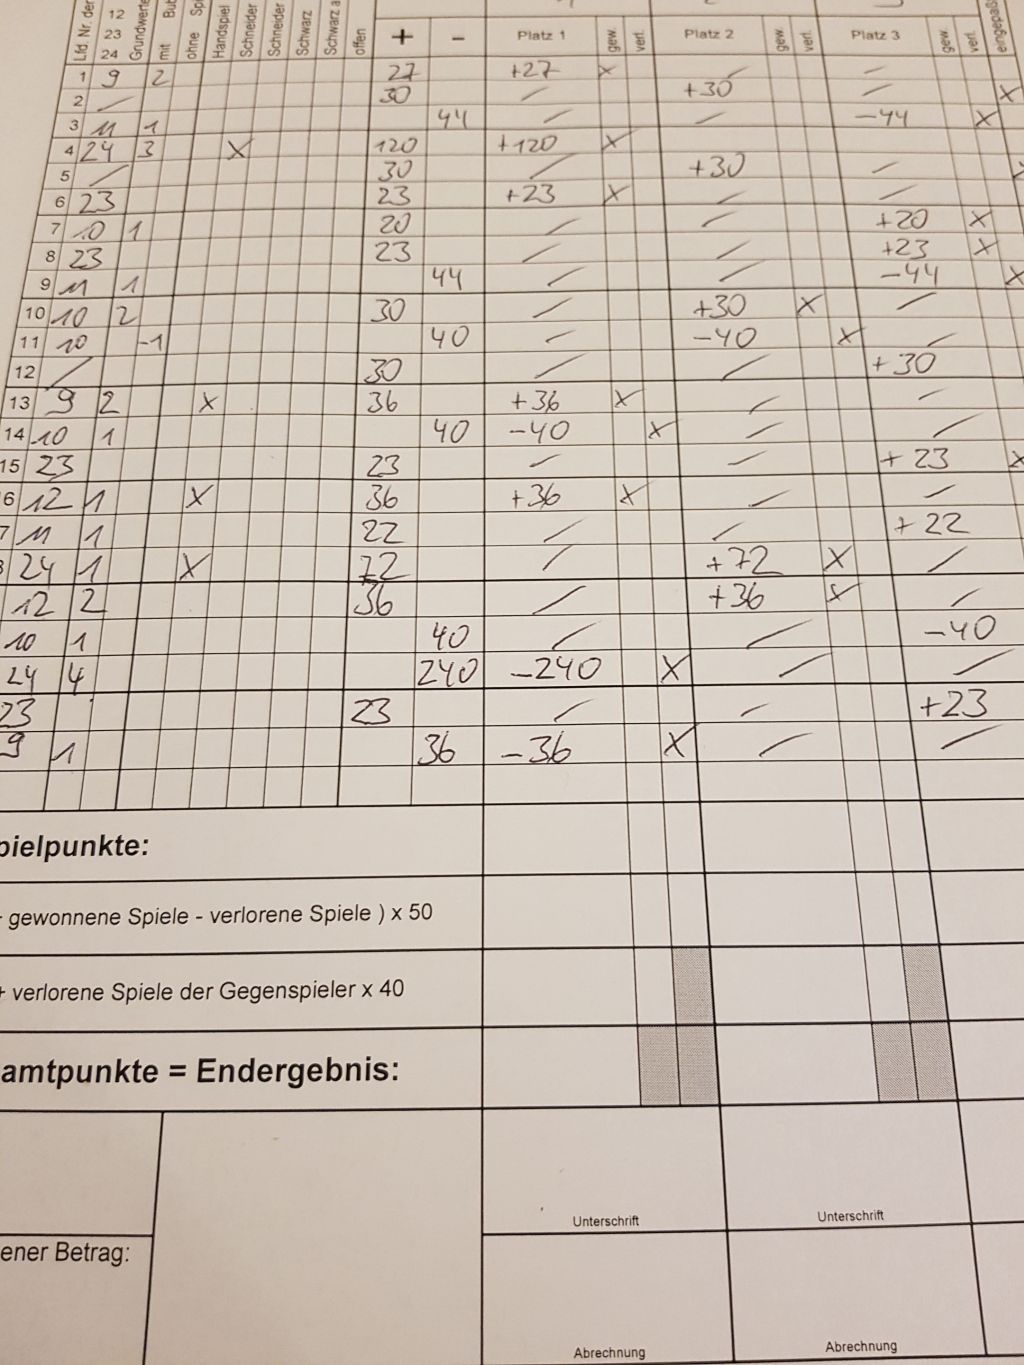 Lfd. Nr. der 12 23 24 Grundwerte mit Bu ohne Spi Handspiel Schneider Schneider Schwarz Schwarz a offen + - Platz 1 gew. verl. Platz 2 gew. verl. Platz 3 gew. verl. eingepaß
1 9 2 27 +27 x / /
2 / 30 / +30 / x
3 11 1 44 / / -44 x
4 24 3 x 120 +120 x
5 / 30 / +30 /
6 23 23 +23 x / /
7 10 1 20 / / +20 x
8 23 23 / / +23 x
9 11 1 44 / / -44 x
10 10 2 30 / +30 x /
11 10 -1 40 / -40 x /
12 / 30 / / +30
13 9 2 x 36 +36 x / /
14 10 1 40 -40 x / /
15 23 23 / / +23 x
6 12 1 x 36 +36 x / /
7 11 1 22 / / +22
8 24 1 x 72 / +72 x /
12 2 36 / +36 x /
10 1 40 / / -40
24 4 240 -240 x / /
23 23 / / +23
9 1 36 -36 x / /
pielpunkte:
- gewonnene Spiele - verlorene Spiele ) x 50
+ verlorene Spiele der Gegenspieler x 40
amtpunkte = Endergebnis:
Unterschrift Unterschrift
ener Betrag:
Abrechnung Abrechnung